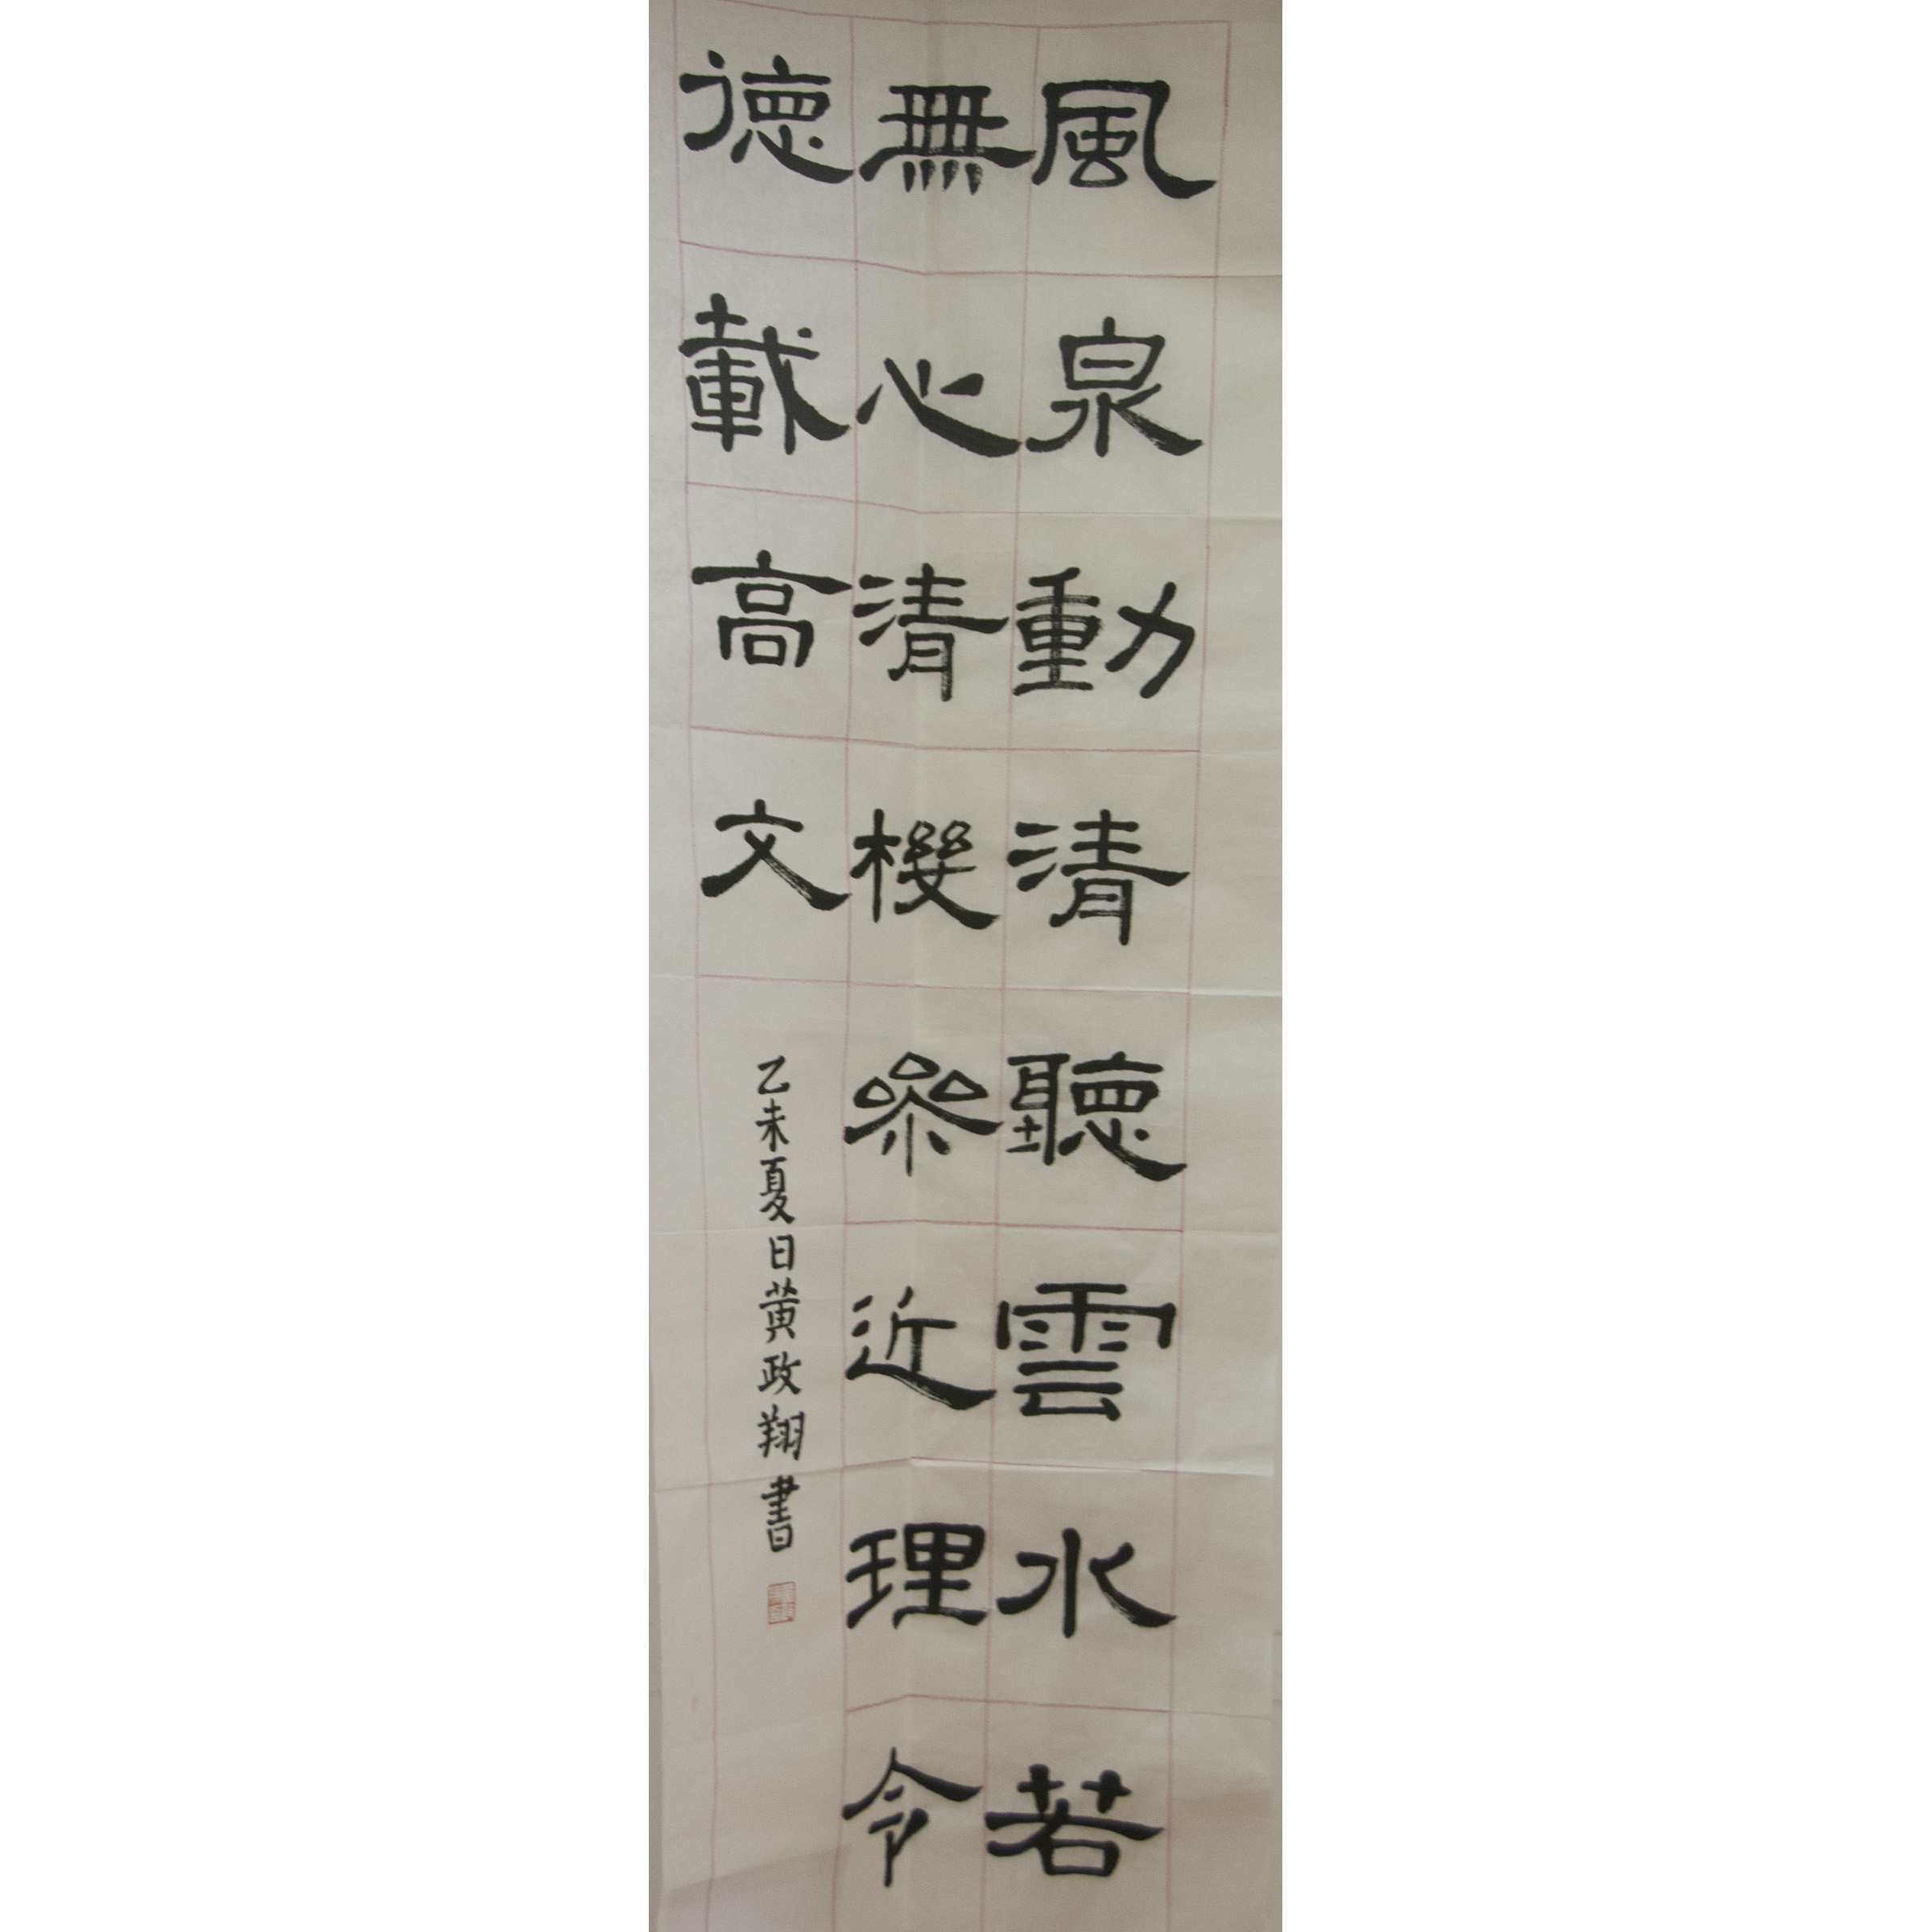 風泉動清聽雲水若
無心清機參近理令
德載高文
乙未夏日黄政翔書